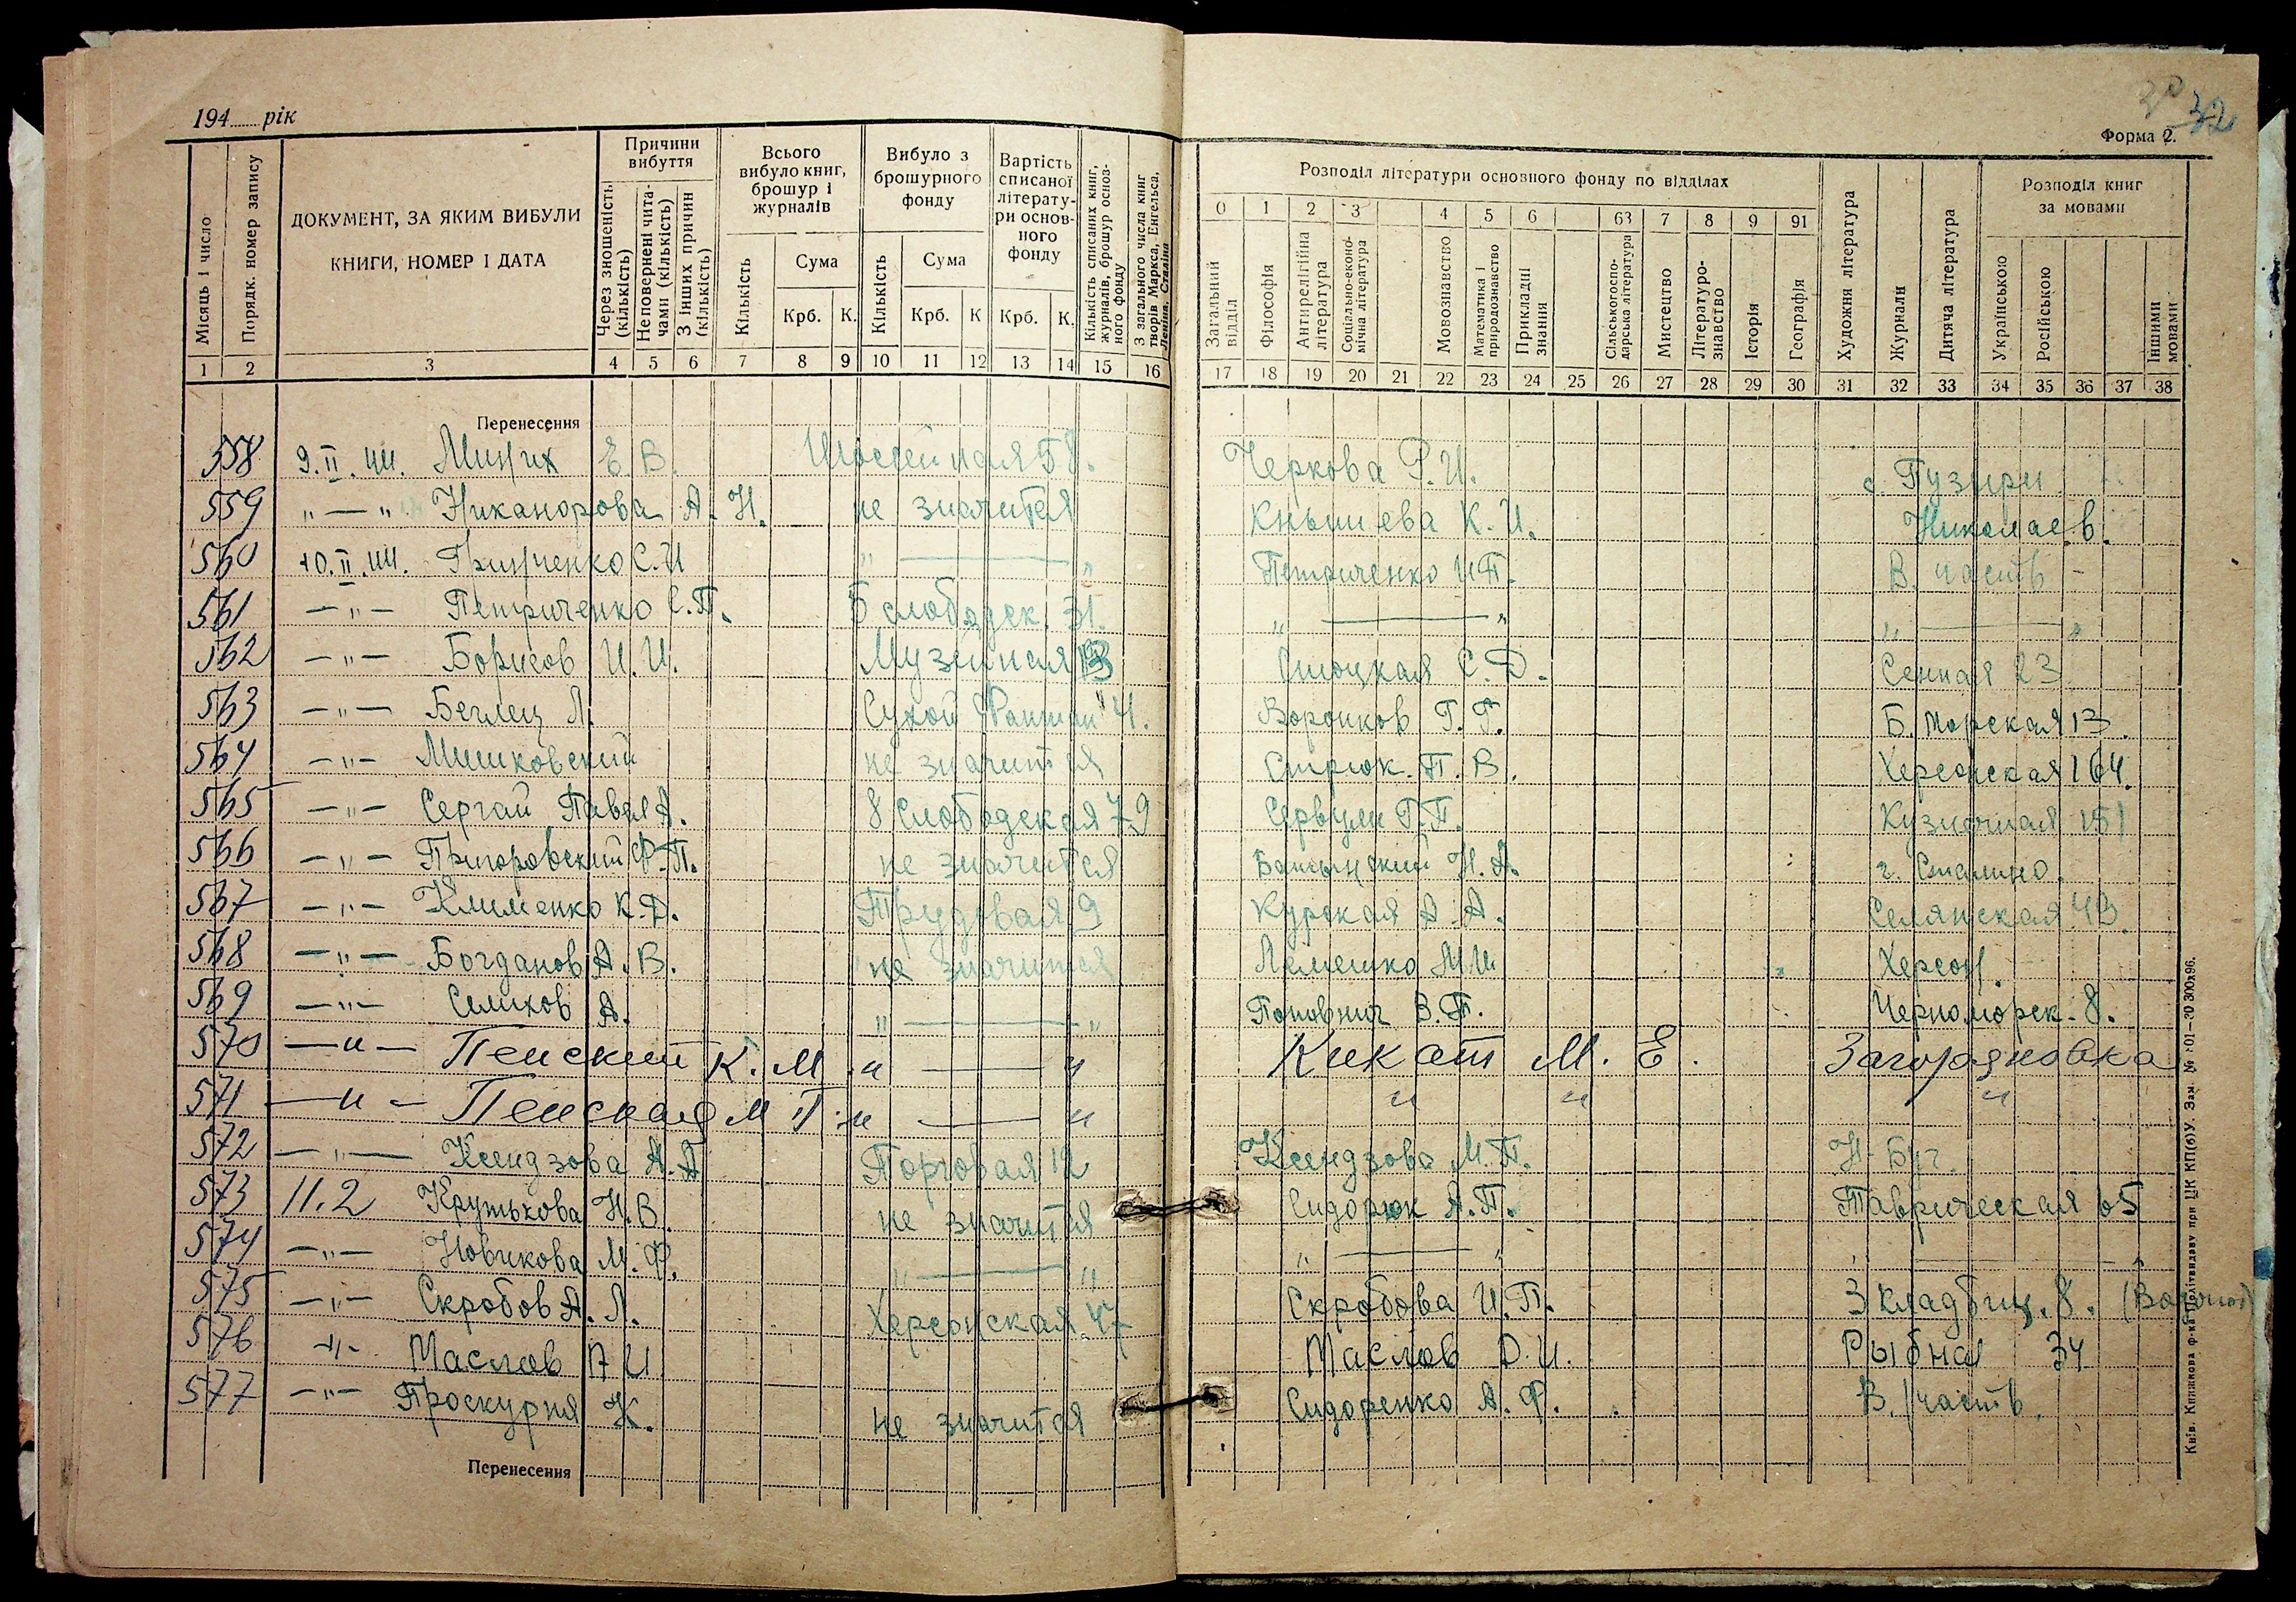 30 32
194 рік
Форма 2.
Місяць і число
Порядк. номер запису
ДОКУМЕНТ, ЗА ЯКИМ ВИБУЛИ
КНИГИ, НОМЕР І ДАТА
Причини вибуття
Через зношеність (кількість)
Неповернені читачами (кількість)
З інших причин (кількість)
Всього вибуло книг, брошур і журналів
Кількість
Сума
Крб. К.
Вибуло з брошурного фонду
Кількість
Сума
Крб. К
Вартість списаної літератури основного фонду
Крб. К.
Кількість списаних книг, журналів, брошур основного фонду
З загального числа книг творів Маркса, Енгельса, Леніна, Сталіна
Розподіл літератури основного фонду по відділах
0 1 2 3 4 5 6 63 7 8 9 91
Загальний відділ
Філософія
Антирелігійна література
Соціально-економічна література
Мовознавство
Математика і природознавство
Прикладні знання
Сільськогосподарська література
Мистецтво
Літературознавство
Історія
Географія
Художня література
Журнали
Дитяча література
Розподіл книг за мовами
Українською
Російською
Іншими мовами
1 2 3 4 5 6 7 8 9 10 11 12 13 14 15 16
17 18 19 20 21 22 23 24 25 26 27 28 29 30 31 32 33 34 35 36 37 38
Перенесення
558 9.II.44. Миних Е В. Шоссейная 58. Черкова Р. И. с. Пузыри
559 „ — „ Никанорова А. Н. не значится Кнышева К. И. Николаев.
560 10.II.44. Гринченко С. И „ — „ Петриченко И П. В. часть
561 — „ — Петриченко С. П. Б слободск. 31. „ — „ „ — „
562 — „ — Борисов И. И. Музейная 13 С. Д. Сенная 23
563 — „ — Беглец Л. Сухой Фонтан 41. Воронков Г. Г. Б. Морская 13.
564 — „ — Мишковский не значится Стрюк. П. В. Херсонская 164.
565 — „ — Сергай Павел А. 8 Слободская 79 Сервули Г. П. Кузнечная 151
566 — „ — Григоровский Ф. П. не значится Н. А. г. Сталино.
567 — „ — Клименко К. Д. Трудовая 9 Курская А. А. Селянская 43.
568 — „ — Богданов А. В. не значится Лемешко М И Херсон
569 — „ — Селихов А. „ — „ Попович В. П. Черноморск. 8.
570 — „ — Пенский К. М „ — „ Кикот М. Е. Загоряновка
571 — „ — Пенская М П. „ — „ „ „ „
572 — „ — Ксендзова А. А Торговая 12 Ксендзова М. П. Н-Буг.
573 11.2 Крутькова Н. В. не значится Сидорюк А. П. Таврическая 65
574 — „ — Новикова М. Ф. „ — „ „ — „ „ — „
575 — „ — Скробов А. Л. Херсонская 47 Скробова И. П. 3 кладбищ. 8.
576 — „ — Маслов А И Маслов Д. И. Рыбная 34
577 — „ — Проскурня К. не значится Сидоренко А. Ф. В. часть.
Перенесення